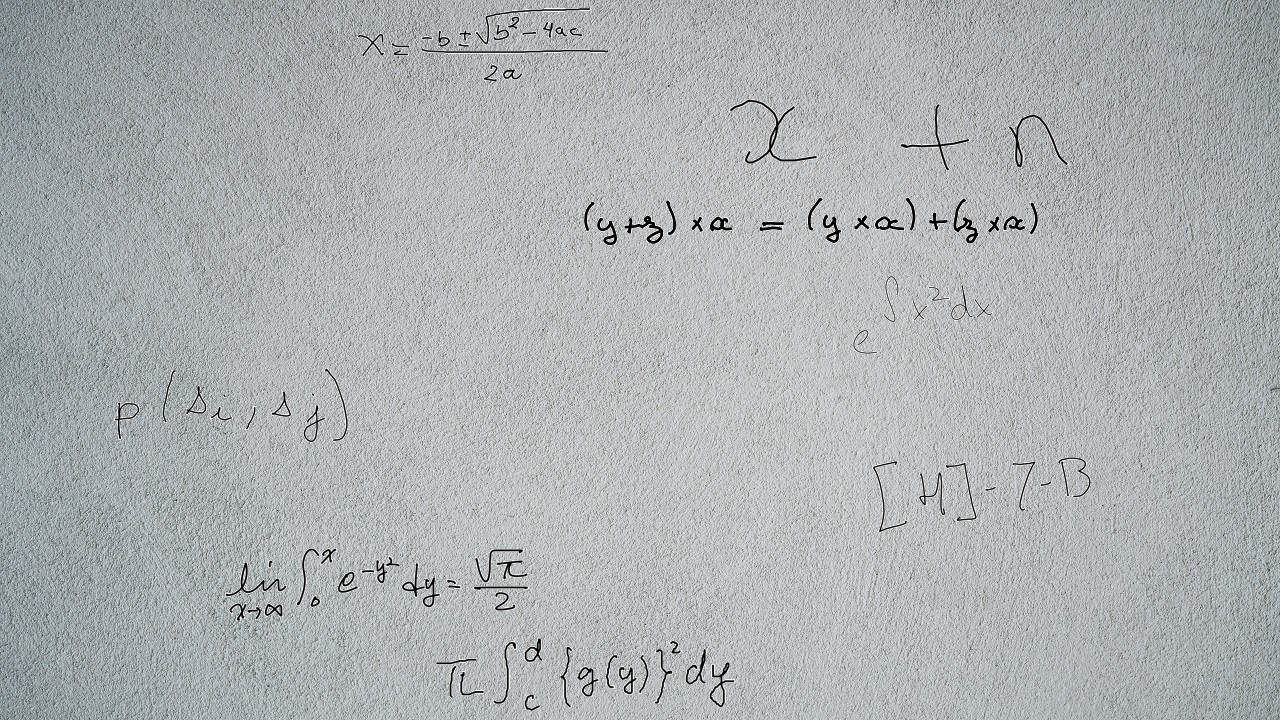 x = \frac{-b \pm \sqrt{b^2 - 4ac}}{2a}
x + n
(y+z) × x = (y × x) + (z × x)
e^{\int x^2 dx}
p(s_i, s_j)
[H]-7-B
\lim_{x \to \infty} \int_0^x e^{-y^2} dy = \frac{\sqrt{\pi}}{2}
\pi \int_c^d \{g(y)\}^2 dy